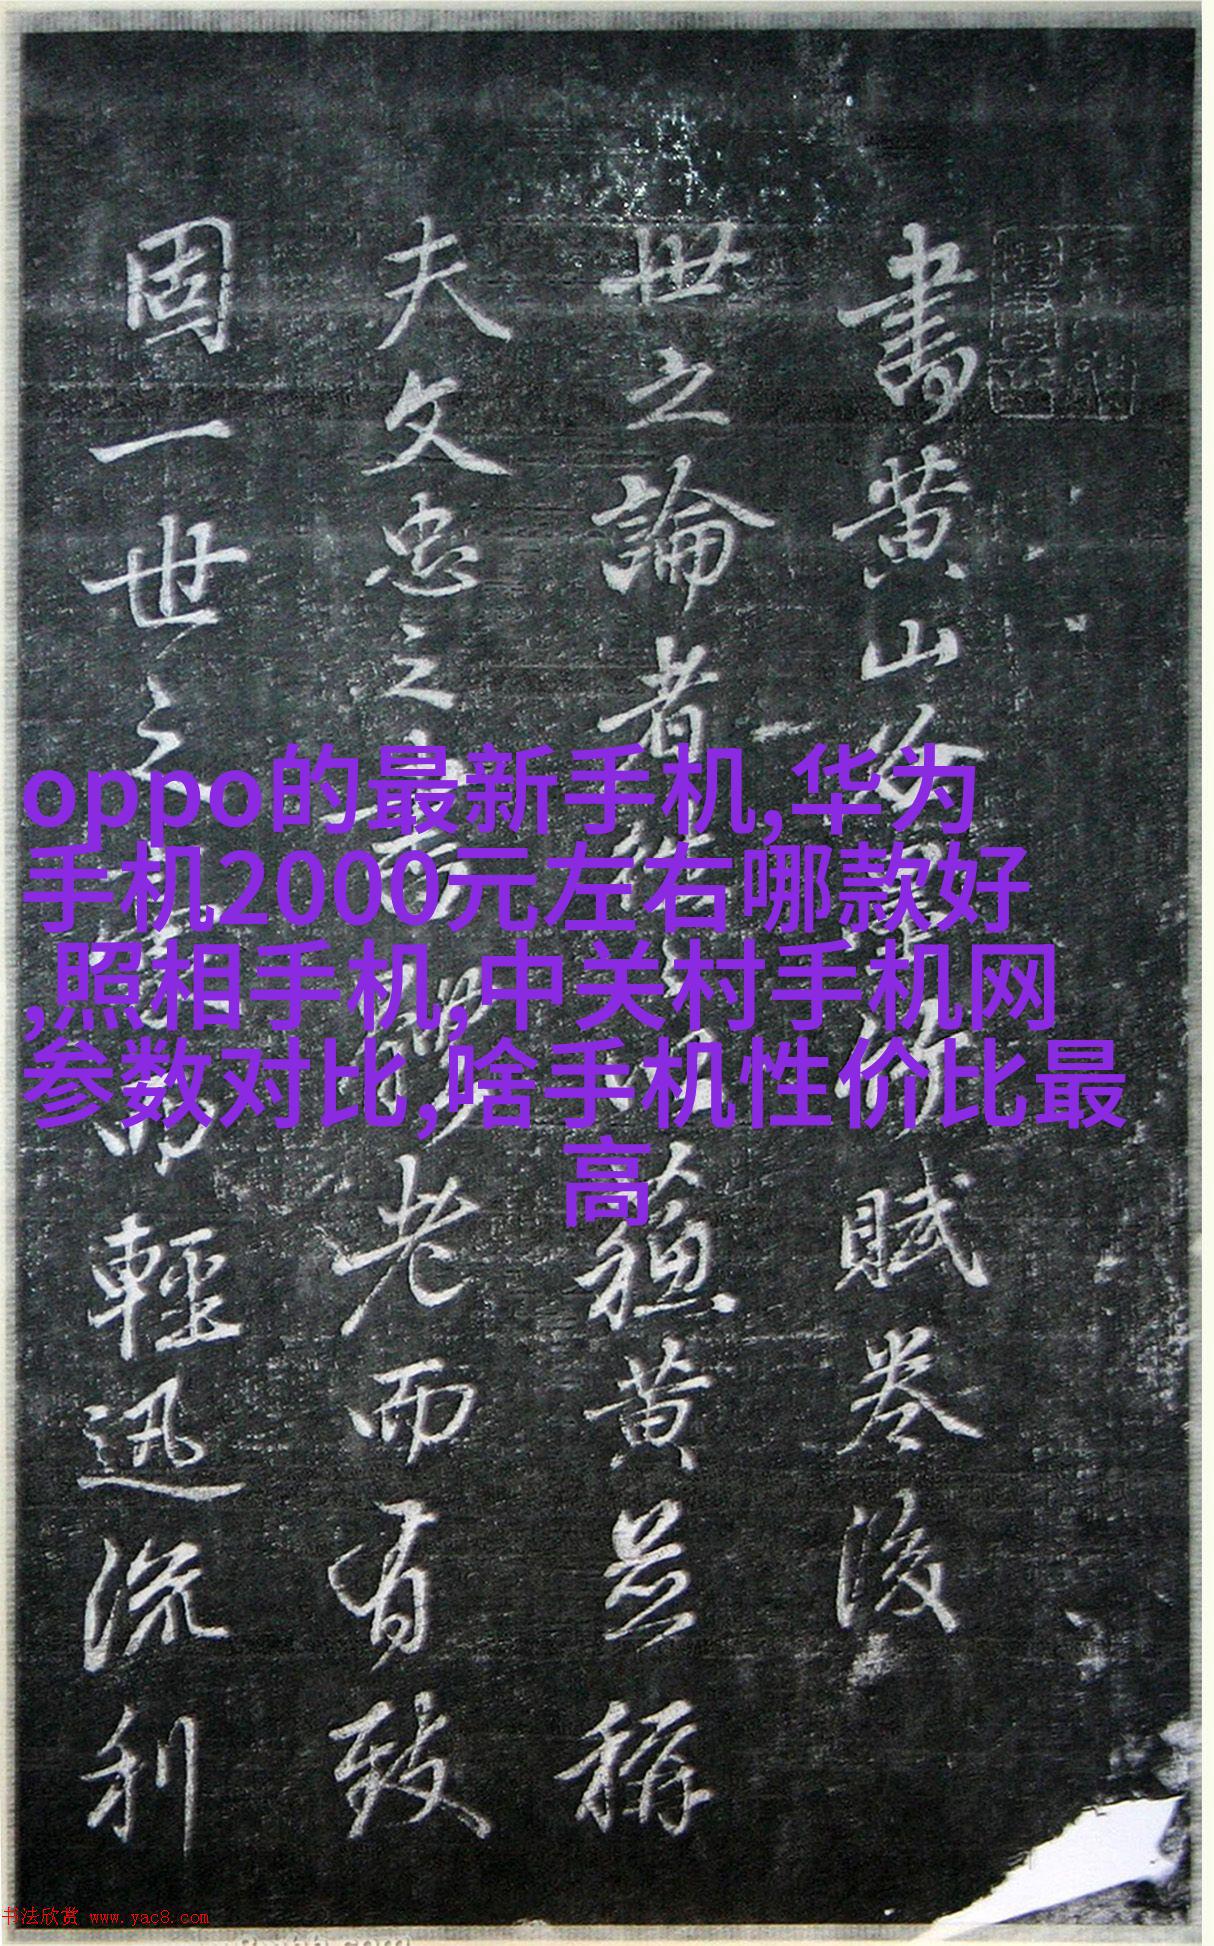 oppo的最新手机,华为
手机2000元左右哪款好
,照相手机,中关村手机网
参数对比,啥手机性价比最
高
書黄山谷
賦卷後
世之論者
蘓黄并称
夫文忠之書
老而有致
固一世之
輕迅流利
书法欣赏 www.yac8.com